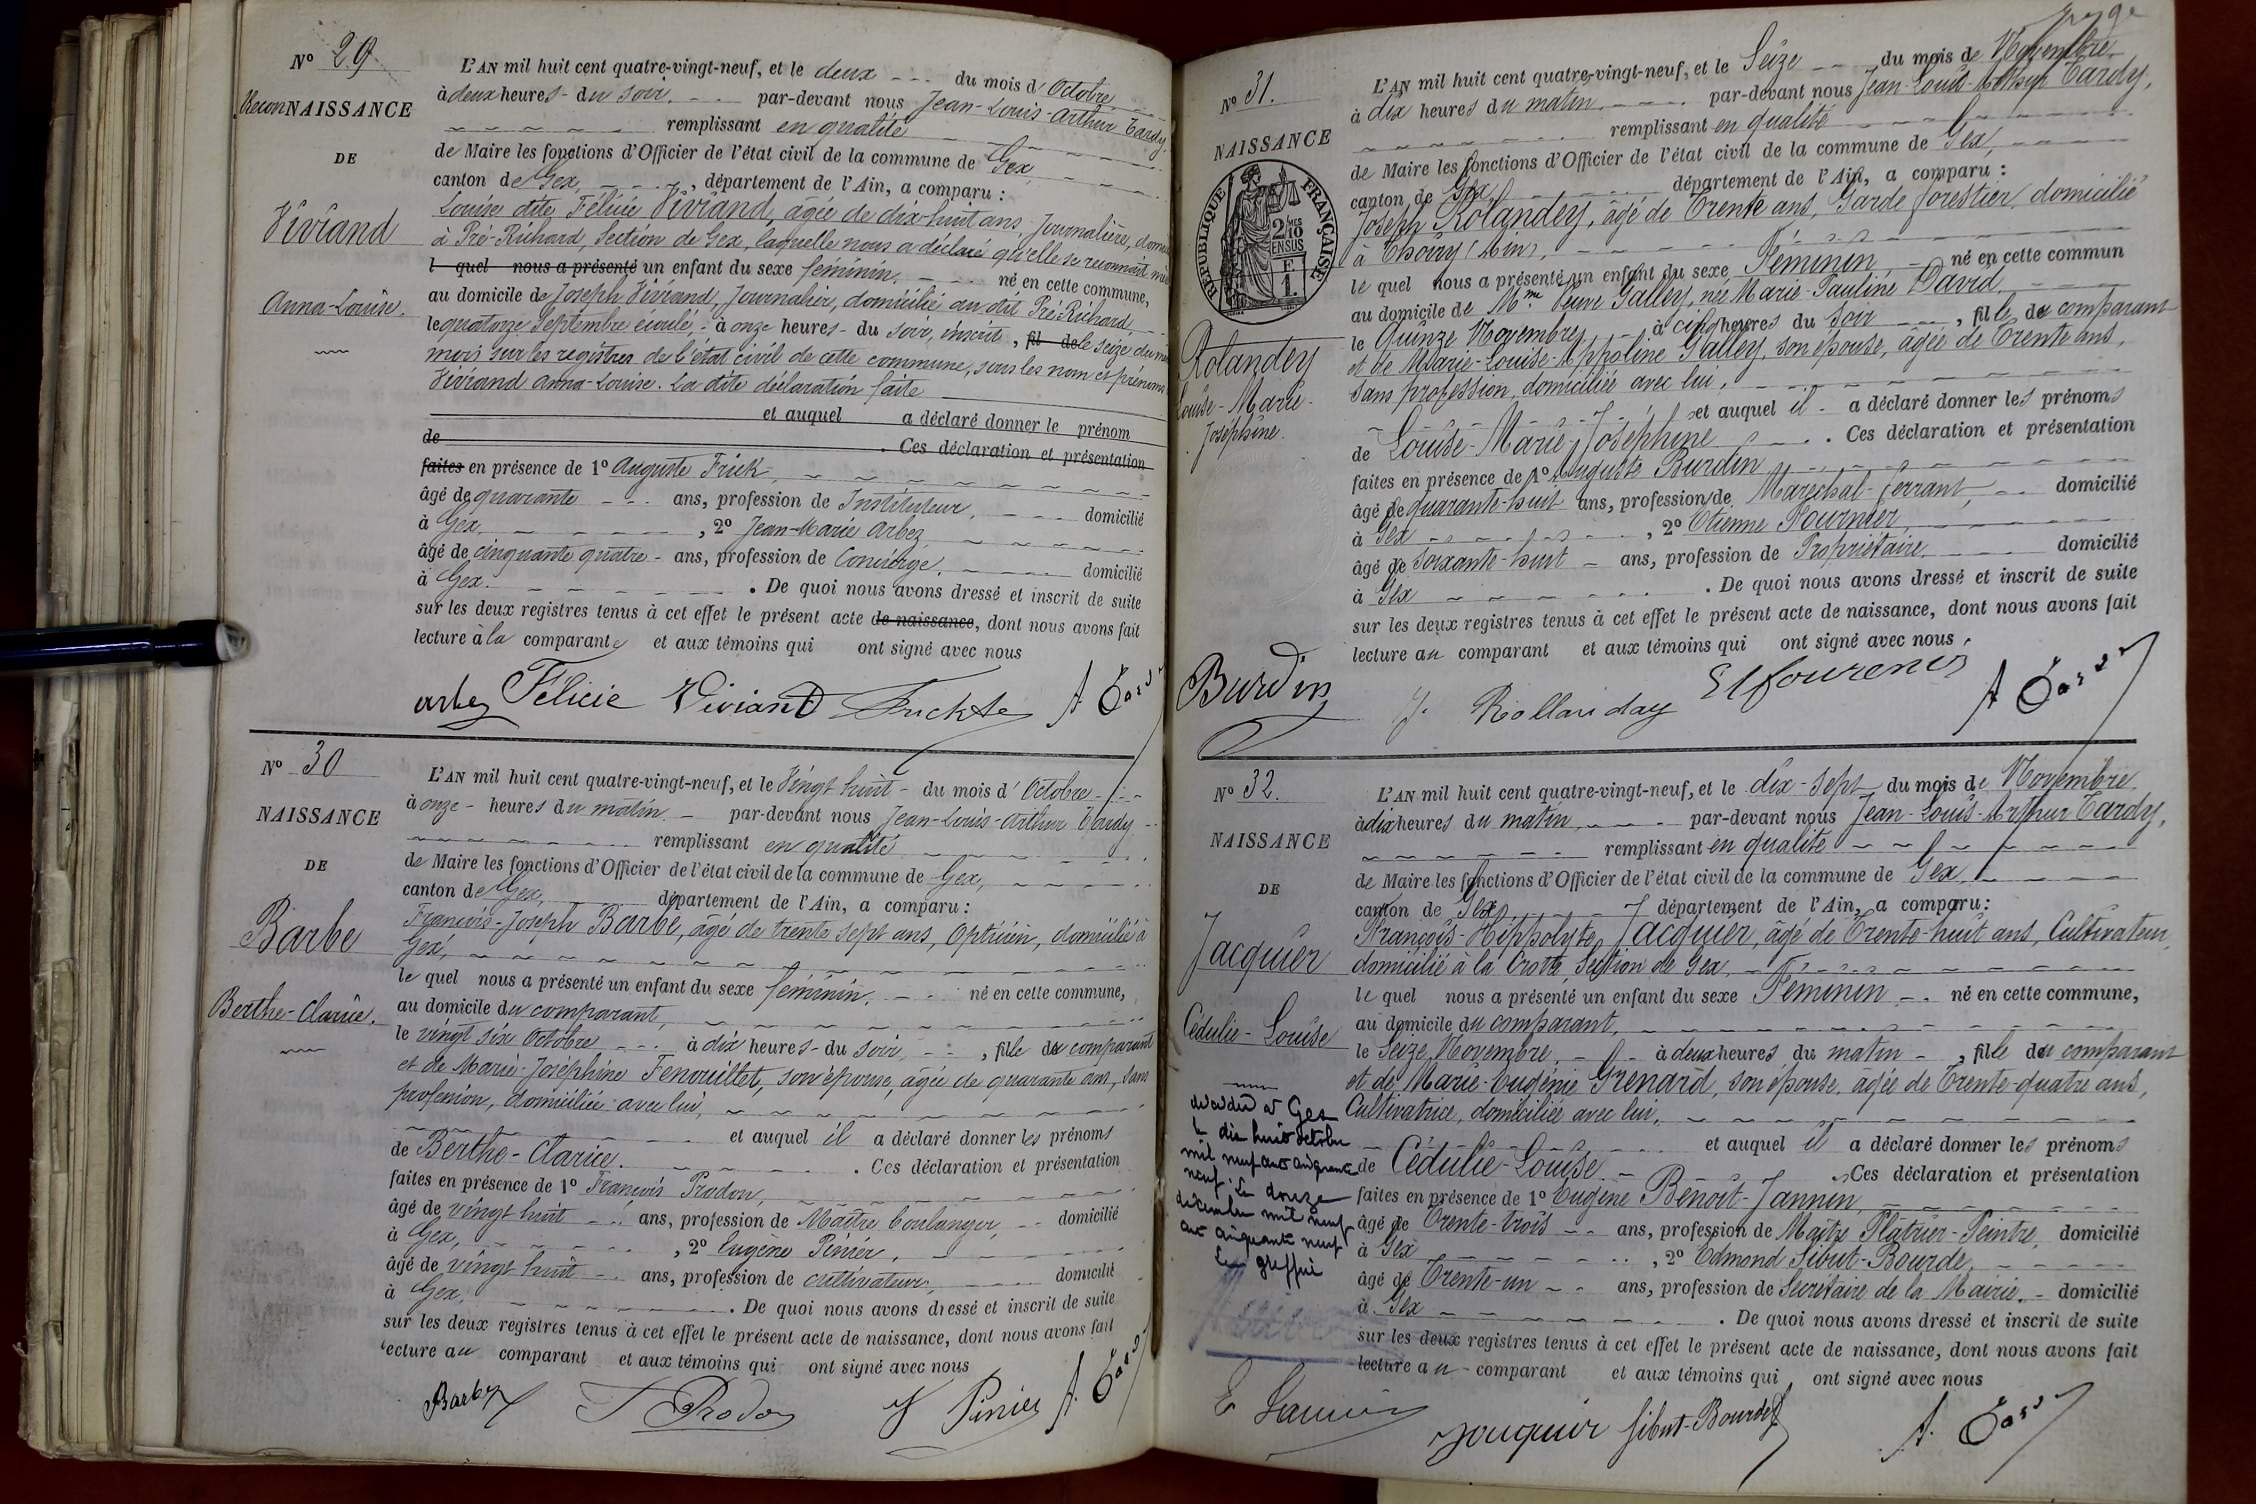 Nº 29
ReconNAISSANCE
DE
Viviand
Anna-Louise.
L'AN mil huit cent quatre-vingt-neuf, et le deux --- du mois d'Octobre
à deux heures - du soir. -- par-devant nous Jean-Louis-Arthur Tardy,
remplissant en qualité
de Maire les fonctions d'Officier de l'état civil de la commune de Gex
canton de Gex, département de l'Ain, a comparu :
Louise dite Félicie Viviand, âgée de dix-huit ans, journalière,
à Pré-Richard, Section de Gex, laquelle nous a déclaré qu'elle se reconnaît
l quel nous a présenté un enfant du sexe féminin. né en cette commune,
au domicile de Joseph Viviand, Journalier, domicilié au dit Pré-Richard,
le quatorze Septembre écoulé, - à onze heures - du soir, inscrit, fil de le seize du
mois sur les registres de l'état civil de cette commune, sous les nom et prénoms
Viviand Anna-Louise. La dite déclaration faite
et auquel a déclaré donner le prénom
de . Ces déclaration et présentation
faites en présence de 1º Auguste Frick,
âgé de quarante --- ans, profession de Instituteur, domicilié
à Gex, , 2º Jean-Marie Arbez
âgé de cinquante quatre - ans, profession de Concierge, domicilié
à Gex. . De quoi nous avons dressé et inscrit de suite
sur les deux registres tenus à cet effet le présent acte de naissance, dont nous avons fait
lecture à la comparante et aux témoins qui ont signé avec nous
arbez Félicie Viviand A Tardy
Nº 30
NAISSANCE
DE
Barbe
Berthe-Clarice.
L'AN mil huit cent quatre-vingt-neuf, et le Vingt huit - du mois d'Octobre
à onze - heures du matin. - par-devant nous Jean-Louis-Arthur Tardy
remplissant en qualité
de Maire les fonctions d'Officier de l'état civil de la commune de Gex,
canton de Gex, département de l'Ain, a comparu :
François-Joseph Barbe, âgé de trente sept ans, Opticien, domicilié à
Gex,
le quel nous a présenté un enfant du sexe féminin. né en cette commune,
au domicile du comparant,
le vingt six Octobre --- à dix heures - du soir --, fille du comparant
et de Marie-Joséphine Fenouillet, son épouse, âgée de quarante ans, Sans
profession, domiciliée avec lui,
et auquel il a déclaré donner les prénoms
de Berthe-Clarice. . Ces déclaration et présentation
faites en présence de 1º François Prodon,
âgé de vingt huit --- ans, profession de Maître boulanger, domicilié
à Gex, , 2º Eugène Pinier,
âgé de vingt huit -- ans, profession de cultivateur, domicilié
à Gex. . De quoi nous avons dressé et inscrit de suite
sur les deux registres tenus à cet effet le présent acte de naissance, dont nous avons fait
lecture au comparant et aux témoins qui ont signé avec nous
Barbe Prodon Pinier A. Tardy
Nº 31.
NAISSANCE
RÉPUBLIQUE FRANÇAISE
2 10MES
EN SUS
Rolandey
Louise-Marie-
Joséphine.
L'AN mil huit cent quatre-vingt-neuf, et le Seize du mois de Novembre
à dix heures du matin. par-devant nous Jean-Louis-Arthur Tardy,
remplissant en qualité
de Maire les fonctions d'Officier de l'état civil de la commune de Gex,
canton de Gex, département de l'Ain, a comparu :
Joseph Rolandey, âgé de Trente ans, Garde forestier, domicilié
à Thoiry (Ain),
le quel nous a présenté un enfant du sexe Féminin, né en cette commun
au domicile de Mme Veuve Galley, née Marie-Pauline David,
le Quinze Novembre à cinq heures du Soir , fille du comparant
et de Marie-Louise-Appoline Galley, son épouse, âgée de Trente ans,
sans profession, domiciliée avec lui,
et auquel il a déclaré donner les prénoms
de Louise-Marie-Joséphine . Ces déclaration et présentation
faites en présence de 1º Auguste Burdin
âgé de quarante-huit ans, profession de Maréchal-ferrant, domicilié
à Gex , 2º Etienne Fournier,
âgé de soixante-huit - ans, profession de Propriétaire domicilié
à Gex . De quoi nous avons dressé et inscrit de suite
sur les deux registres tenus à cet effet le présent acte de naissance, dont nous avons fait
lecture au comparant et aux témoins qui ont signé avec nous.
Burdin J. Rollanday A Tardy
Nº 32.
NAISSANCE
DE
Jacquier
Cédulie-Louise
décédée à Gex
le dix huit octobre
mil neuf cent cinquante
neuf. Le douze
décembre mil neuf
cent cinquante neuf
Le greffier
L'AN mil huit cent quatre-vingt-neuf, et le dix-sept du mois de Novembre
à dix heures du matin, par-devant nous Jean-Louis-Arthur Tardy,
remplissant en qualité
de Maire les fonctions d'Officier de l'état civil de la commune de Gex,
canton de Gex, département de l'Ain, a comparu :
François-Hippolyte Jacquier, âgé de Trente-huit ans, Cultivateur,
domicilié à la Crotte Section de Gex,
le quel nous a présenté un enfant du sexe Féminin né en cette commune,
au domicile du comparant,
le Seize Novembre, à deux heures du matin - , fille du comparant
et de Marie-Eugénie Grenard, son épouse, âgée de Trente-quatre ans,
Cultivatrice, domiciliée avec lui.
et auquel il a déclaré donner les prénoms
de Cédulie-Louise . Ces déclaration et présentation
faites en présence de 1º Eugène Benoit-Jannin,
âgé de Trente-trois -- ans, profession de Maître Plâtrier-Peintre, domicilié
à Gex , 2º Edmond Sibut-Bourde,
âgé de Trente-un -- ans, profession de Secrétaire de la Mairie. - domicilié
à Gex . De quoi nous avons dressé et inscrit de suite
sur les deux registres tenus à cet effet le présent acte de naissance, dont nous avons fait
lecture au - comparant et aux témoins qui ont signé avec nous
E Jannin Jacquier Sibut-Bourde A. Tardy